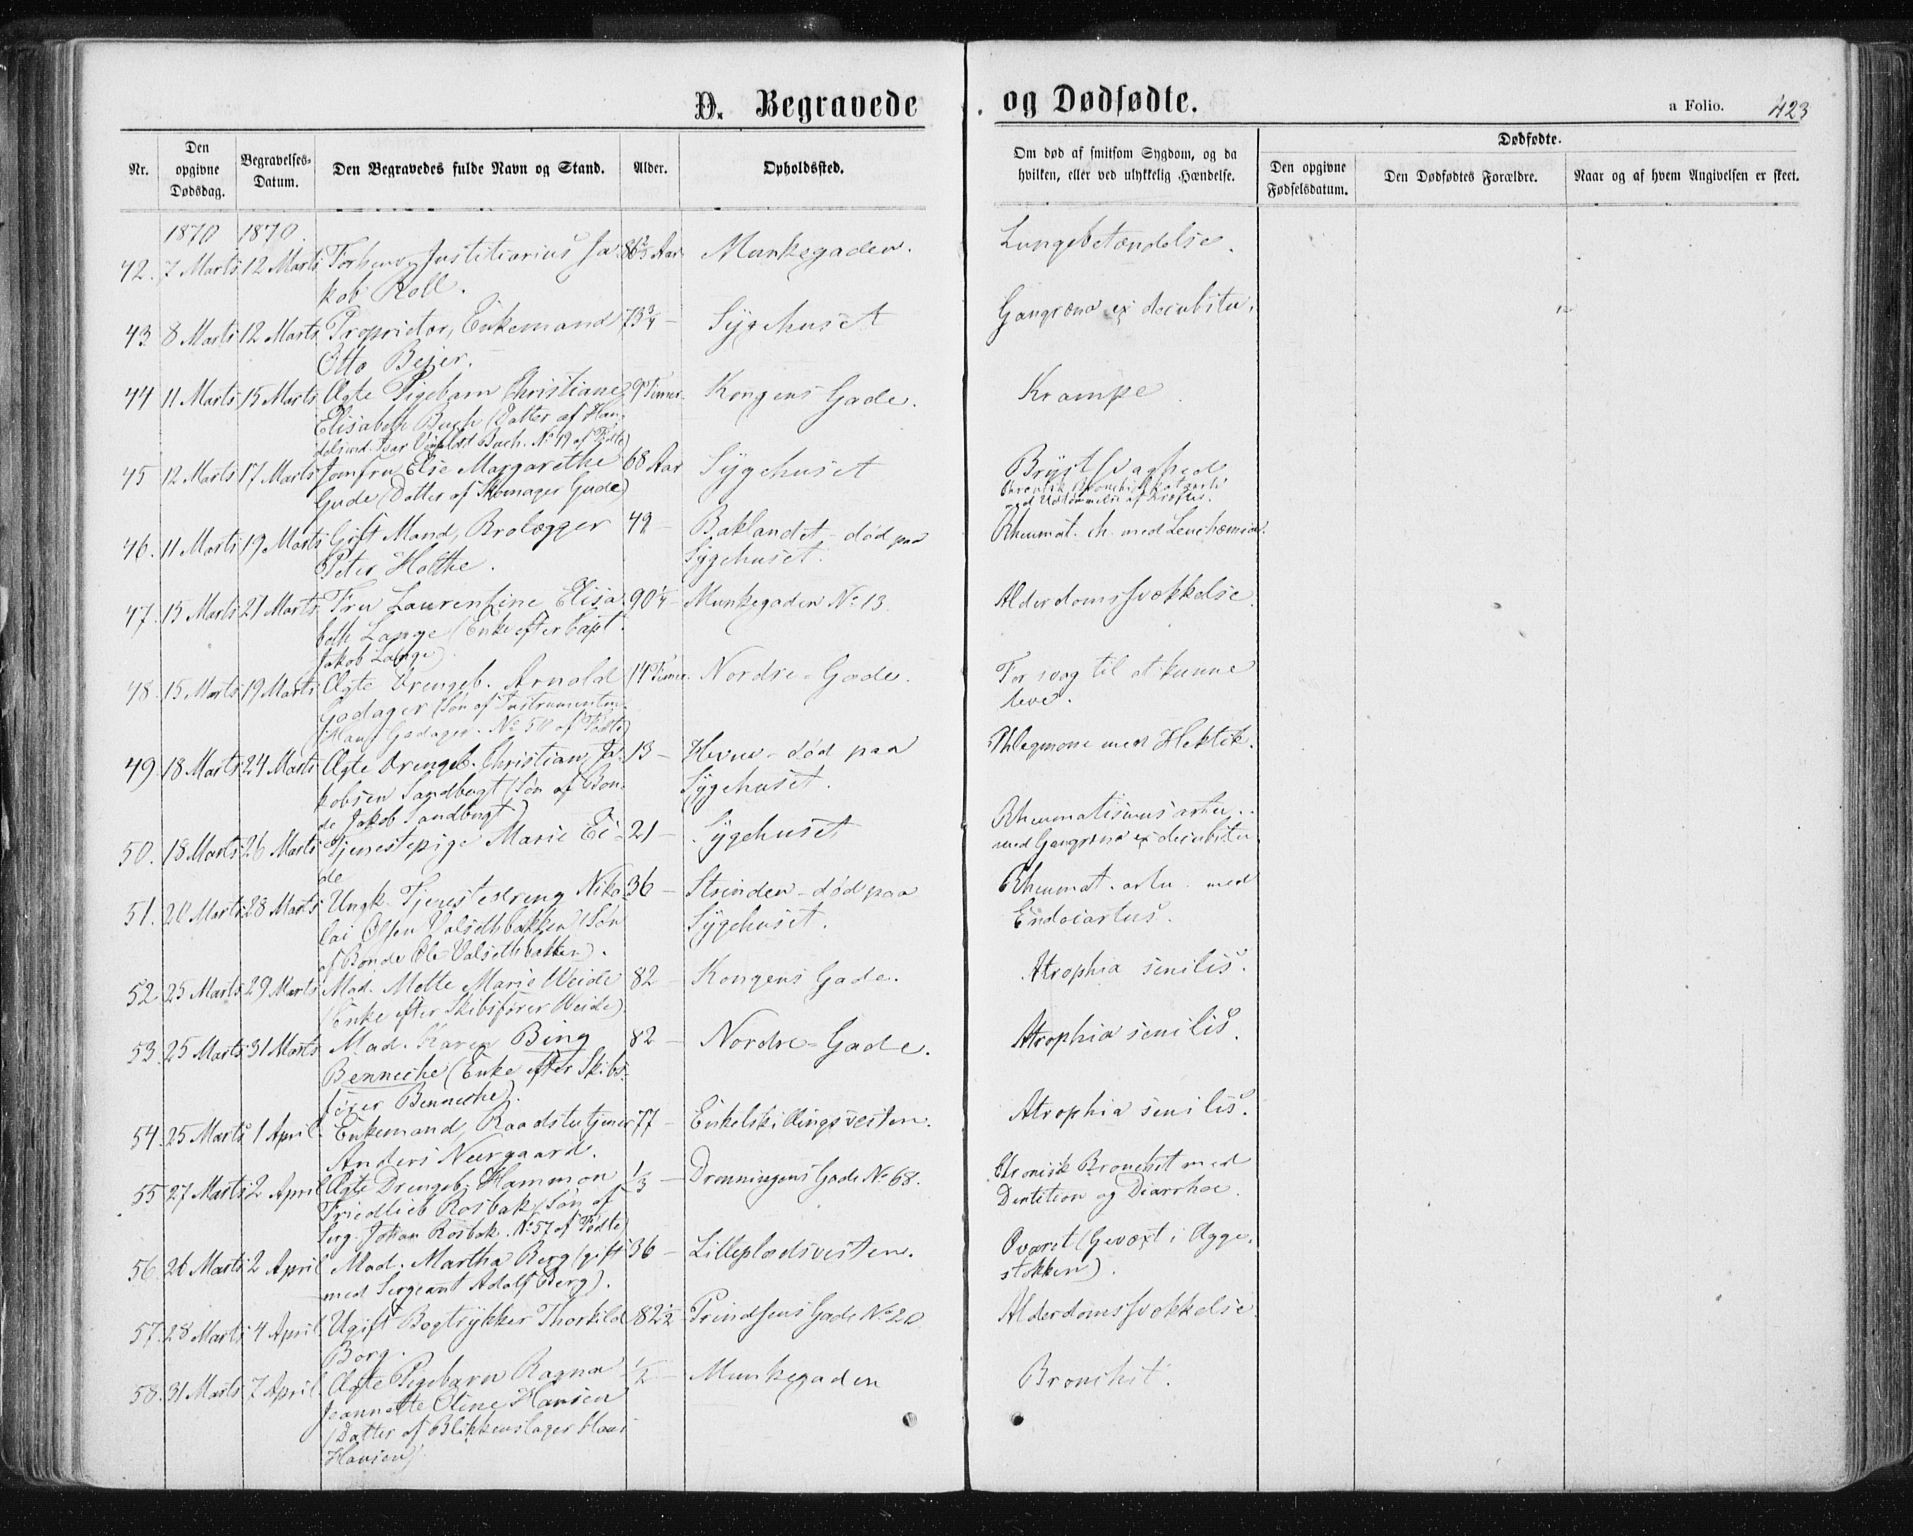 D. Begravede og Dødfødte.
a Folio. 423
Nr.
Den opgivne Dødsdag.
Begravelses-Datum.
Den Begravedes fulde Navn og Stand.
Alder.
Opholdssted.
Om død af smitsom Sygdom, og da hvilken, eller ved ulykkelig Hændelse.
Dødfødte.
Den opgivne Fødselsdatum.
Den Dødfødtes Forældre.
Naar og af hvem Angivelsen er skeet.
1870 1870
42. 7 Marts 12 Marts Forhenv. Justitiarius Ja- 86 2/3 Aar Munkegaden. Lungebetændelse.
kob Roll.
43 8 Marts 12 Marts Proprietær, Enkemand 73 3/4 — Sygehuset Gangræna ex decubitu.
Otto Bejer.
44 11 Marts 15 Marts Ægte Pigebarn Christiane 9 Timer. Kongens Gade. Krampe.
Elisabeth Buch (Datter af Han-
delsmd. Buch. No 19 af Fødte)
45 12 Marts 17 Marts Jomfru Else Margarethe 68 Aar Sygehuset Brystsvaghed
Gude (Datter af Skomager Gude) med Udtømmelse af Kræfter.
46. 11 Marts 19 Marts Gift Mand, Brolægger 49 — Baklandet - død paa Rheumat. ch. med Leuchæmia.
Peter Holthe. Sygehuset.
47. 15 Marts 21 Marts Fru Laurentine Elisa- 90 1/4 — Munkegaden No 13. Alderdomssvækkelse.
beth Lange (Enke efter Capt.
Jakob Lange).
48. 15 Marts 19 Marts Ægte Drengeb. Arnold 14 Timer. Nordre-Gade. For svag til at kunne
Gadager (Søn af Instrumentm. leve.
Hans Gadager. No 50 af Fødte)
49. 18 Marts 24 Marts Ægte Drengeb. Christian Ja- 13 — Hevne - død paa Phlegmone med Hektik.
kobsen Sandbugt (Søn af Bon- Sygehuset.
de Jakob Sandbugt)
50. 18 Marts 26 Marts Tjenestepige Marie Ei- 21 — Sygehuset Rheumatismus artic.
de med Gangræna ex decubitu
51. 20 Marts 28 Marts Ungk. Tjenestedreng Niko- 36 — Strinden - død paa Rheumat. artic. med
lai Olsen Valsethbakken (Søn Sygehuset. Endocartus.
af Bonde Ole Valsethbakken).
52. 25 Marts 29 Marts Mad. Mette Marie Weide 82 — Kongens Gade. Atrophia senilis.
(Enke efter Skibsfører Weide).
53. 25 Marts 31 Marts Mad. Karen Bing 82 — Nordre-Gade. Atrophia senilis.
Benneche (Enke efter Skibs-
fører Benneche).
54. 25 Marts 1 April. Enkemand, Raadstutjener 77 — Enkelskillingsveiten. Atrophia senilis.
Anders Neergaard.
55 27 Marts 2 April Ægte Drengeb. Hammon 1/3 — Dronningens Gade No 68. Chronisk Bronchit med
Friedlieb Rosbak (Søn af Dentition og Diarrhoe.
Serg. Johan Rosbak. No 57 af Fødte)
56. 26 Marts 2 April Mad. Martha Berg (gift 36 — Lillepladsveiten. Ovariet (Gevæxt i Ægge-
med Sergeant Adolf Berg). stokken).
57. 28 Marts 4 April Ugift Bogtrykker Thorkild 82 1/2 — Prindsens Gade No 20 Alderdomssvækkelse
Borg.
58. 31 Marts 7 April. Ægte Pigebarn Ragna 1/2 — Munkegaden Bronchit.
Jeannette Oline Hansen
(Datter af Blikkenslager Hans
Hansen)